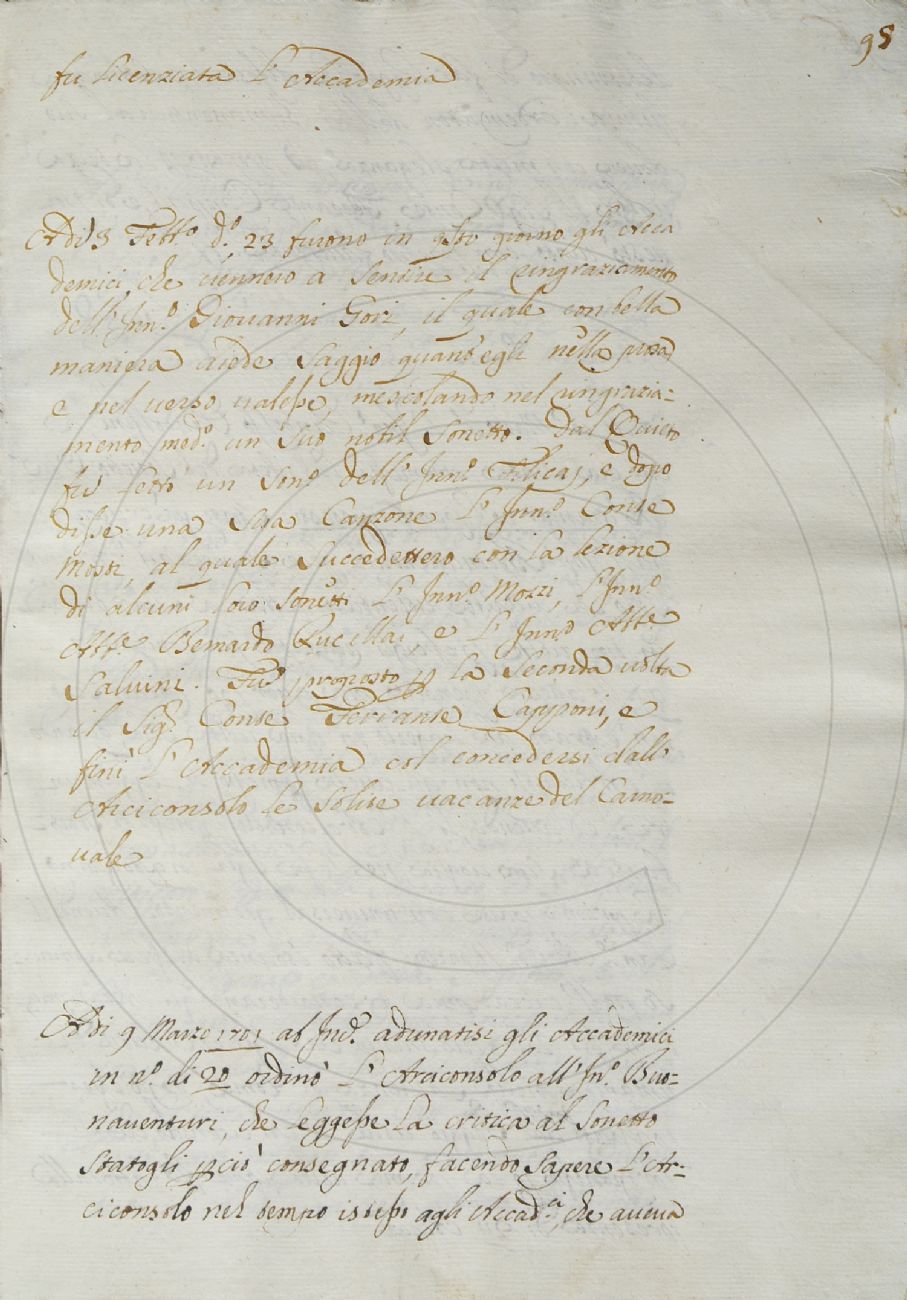 98
fu Licenziata L'Accademia
Adì 8 Febb.º d.º 23 furono in q.sto giorno gli Acca
demici che vennero a sentire il ringraziamento
dell'Inn.º Giovanni Gori, il quale con bella
maniera diede saggio quant'egli nella prosa
e nel verso valesse, mescolando nel ringrazia=
mento med.º un suo nobil sonetto. Dal Quieto
fù letto un son.º dell'Inn.º Filicaj, e dopo
disse una sua Canzone L'Inn.º Conte
Mosti, al quale succedettero con la lezione
di alcuni loro sonetti L'Inn.º Mozzi, L'Inn.º
Abb.e Bernardo Rucellai, e L'Inn.º Abb.e
Salvini. Fù proposto p la seconda volta
il Sig.r Conte Ferrante Capponi, e
finì L'Accademia col concedersi dall'
Arciconsolo le solite vacanze del Carno=
vale
Adì 9 Marzo 1701 ab Inc.e adunatisi gli Accademici
in n.º di 20 ordinò L'Arciconsolo all'In.º Buo=
naventuri, che leggesse la critica al sonetto
statogli pciò consegnato, facendo sapere L'Ar=
ciconsolo nel tempo istesso agli Accad.ci, che aveva